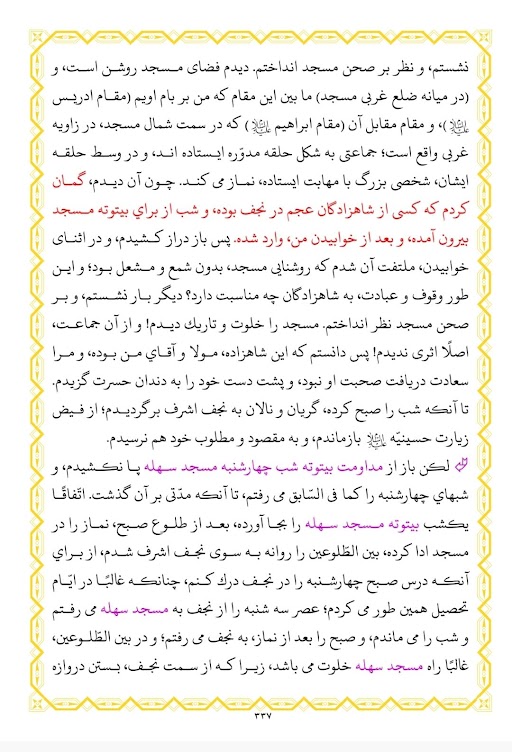 نشستم، و نظر بر صحن مسجد انداختم. دیدم فضای مسجد روشن است، و
(در میانه ضلع غربی مسجد) ما بین این مقام که من بر بام اویم (مقام ادریس
علیه السلام)، و مقام مقابل آن (مقام ابراهیم علیه السلام) که در سمت شمال مسجد، در زاویه
غربی واقع است؛ جماعتی به شکل حلقه مدوّره ایستاده اند، و در وسط حلقه
ایشان، شخصی بزرگ با مهابت ایستاده، نماز می کند. چون آن دیدم، گمان
کردم که کسی از شاهزادگان عجم در نجف بوده، و شب از براي بیتوته مسجد
بیرون آمده، و بعد از خوابیدن من، وارد شده. پس باز دراز کشیدم، و در اثنای
خوابیدن، ملتفت آن شدم که روشنایی مسجد، بدون شمع و مشعل بود؛ و این
طور وقوف و عبادت، به شاهزادگان چه مناسبت دارد؟ دیگر بار نشستم، و بر
صحن مسجد نظر انداختم. مسجد را خلوت و تاریك دیدم! و از آن جماعت،
اصلًا اثری ندیدم! پس دانستم که این شاهزاده، مولا و آقاي من بوده، و مرا
سعادت دریافت صحبت او نبود، و پشت دست خود را به دندان حسرت گزیدم.
تا آنکه شب را صبح کرده، گریان و نالان به نجف اشرف برگردیدم؛ از فیض
زیارت حسینیّه علیه السلام بازماندم، و به مقصود و مطلوب خود هم نرسیدم.
لکن باز از مداومت بیتوته شب چهارشنبه مسجد سهله پا نکشیدم، و
شبهاي چهارشنبه را کما فی السّابق می رفتم، تا آنکه مدّتی بر آن گذشت. اتّفاقًا
یکشب بیتوته مسجد سهله را بجا آورده، بعد از طلوع صبح، نماز را در
مسجد ادا کرده، بین الطّلوعین را روانه به سوی نجف اشرف شدم، از براي
آنکه درس صبح چهارشنبه را در نجف درك کنم، چنانکه غالبًا در ایّام
تحصیل همین طور می کردم؛ عصر سه شنبه را از نجف به مسجد سهله می رفتم
و شب را می ماندم، و صبح را بعد از نماز، به نجف می رفتم؛ و در بین الطّلوعین،
غالبًا راه مسجد سهله خلوت می باشد، زیرا که از سمت نجف، بستن دروازه
۳۳۷